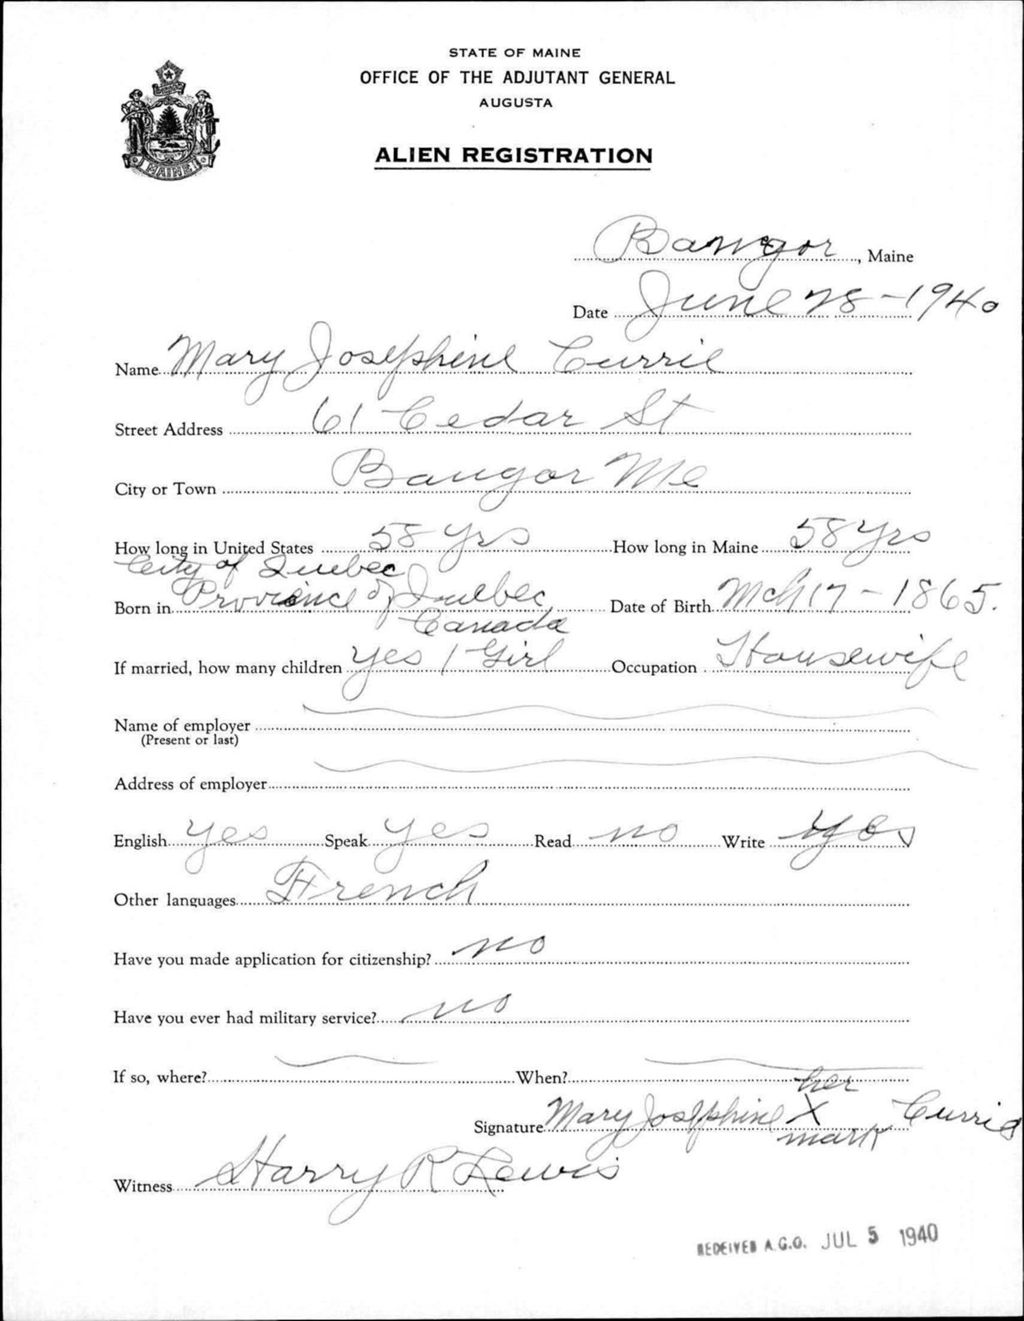 STATE OF MAINE
OFFICE OF THE ADJUTANT GENERAL
AUGUSTA
ALIEN REGISTRATION
MAINE
Bangor, Maine
Date June 28-1940
Name Mary Josephine Currie
Street Address 61 Cedar St
City or Town Bangor Me
How long in United States 58 yrs How long in Maine 58 yrs
City of Quebec
Born in Province of Quebec, Date of Birth Mch 17-1865.
Canada
If married, how many children yes 1 Girl Occupation Housewife
Name of employer
(Present or last)
Address of employer
English yes Speak yes Read no Write yes
Other languages French
Have you made application for citizenship? no
Have you ever had military service? no
If so, where? When?
her
Signature Mary Josephine X Currie
mark
Witness Harry R Lewis
RECEIVED A.G.O. JUL 5 1940